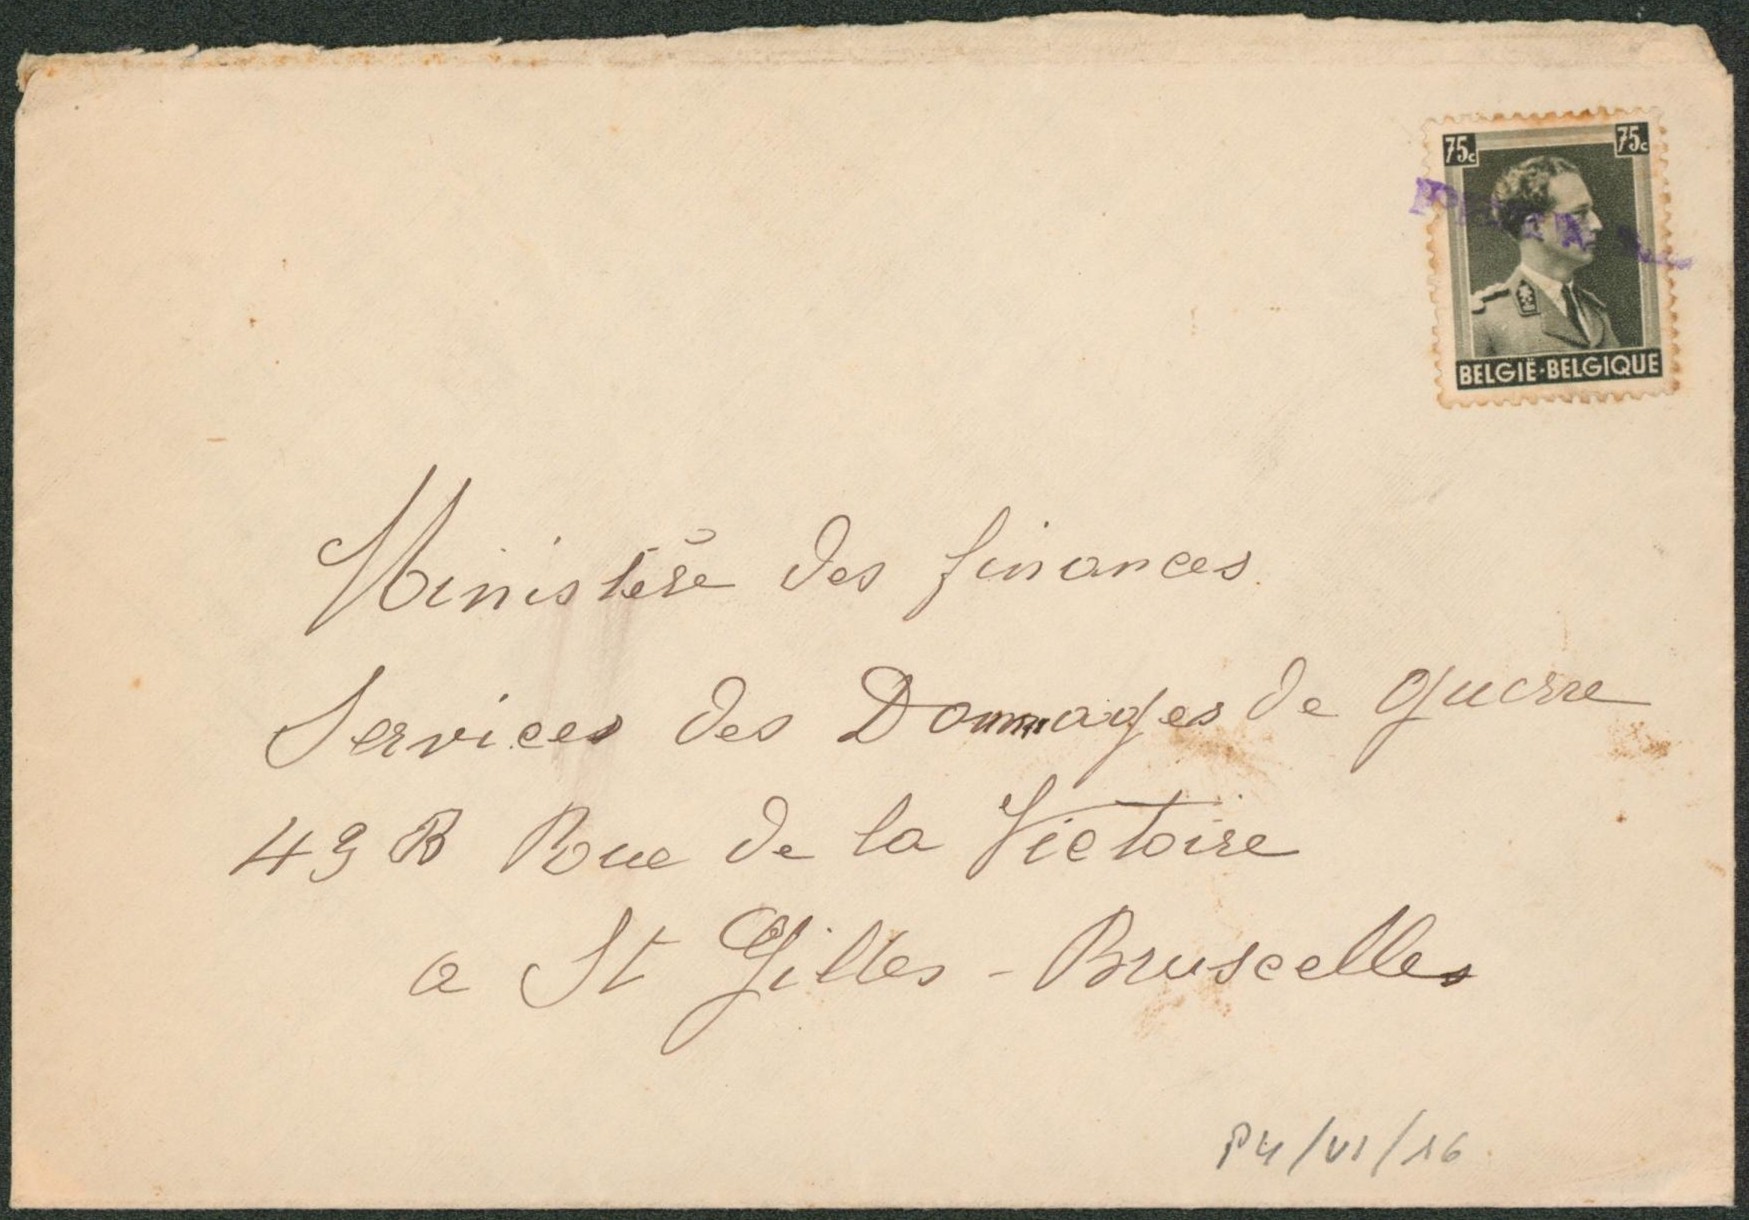 75c 75c
BELGIË·BELGIQUE
Ministère des finances
Services des Dommages de guerre
49 B Rue de la Victoire
a St Gilles - Bruscelles
P4/VI/16